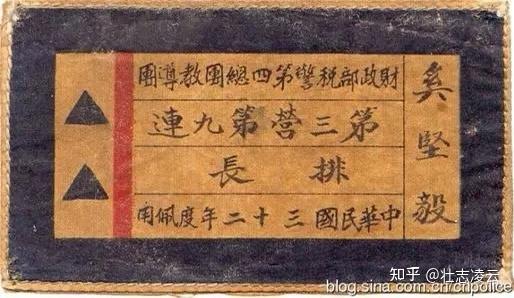 奚堅毅
財政部税警第四總團教導團
第三營第九連
排長
中華民國三十二年度佩用
知乎 @壮志凌云
blog.sina.com.cn/cnpolice